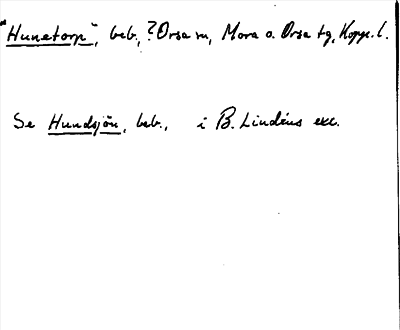 "Hunetorp", beb., ?Orsa sn, Mora o. Orsa tg, Kopp. l.
Se Hundsjön, beb., i B. Lindéns exc.